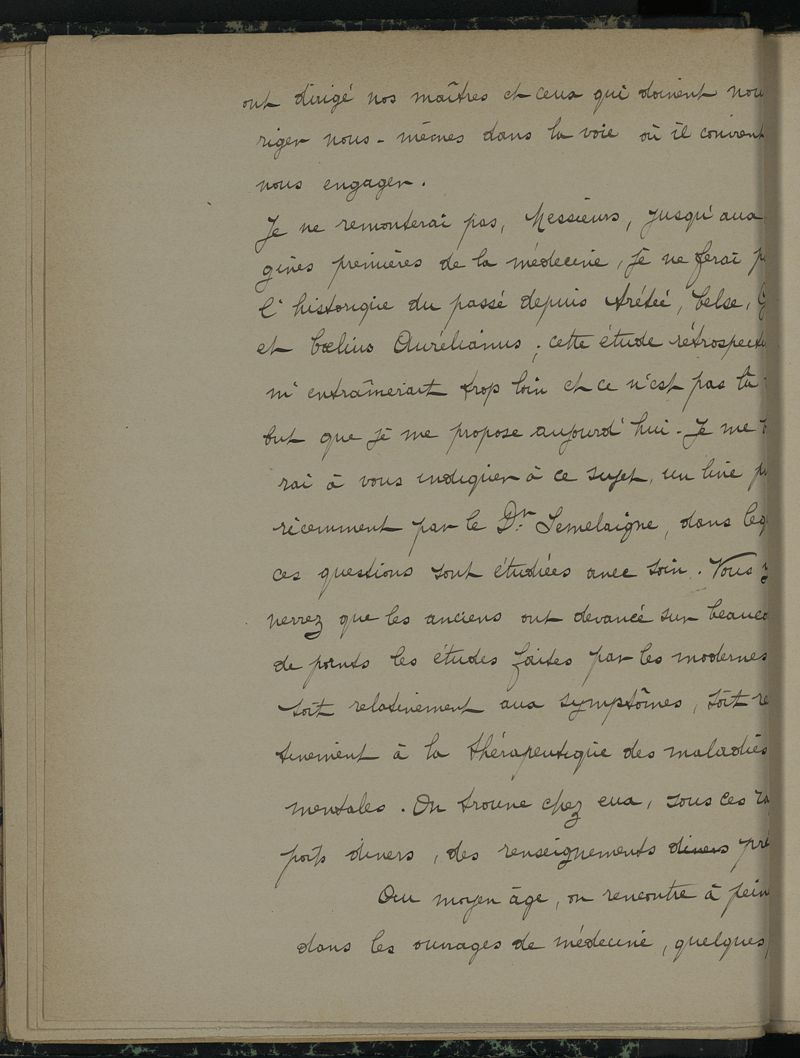 ont dirigé nos maîtres et ceux qui doivent nou
riger nous-mêmes dans la voie où il convient
nous engager.
Je ne remonterai pas, Messieurs, jusqu'aux
gines premières de la médecine, je ne ferai p
l'historique du passé depuis Arétée, Celse,
et Cœlius Aurélianus ; cette étude rétrospecti
m'entraînerait trop loin et ce n'est pas là
but que je me propose aujourd'hui. Je me
rai à vous indiquer à ce sujet, un livre p
récemment par le Dr. Semelaigne, dans leq
ces questions sont étudiées avec soin. Vous y
verrez que les anciens ont devancé sur beauco
de points les études faites par les modernes
soit relativement aux symptômes, soit re
tivement à la thérapeutique des maladies
mentales. On trouve chez eux, sous ces ra
ports divers, des renseignements divers pré
Au moyen âge, on rencontre à pein
dans les ouvrages de médecine, quelques